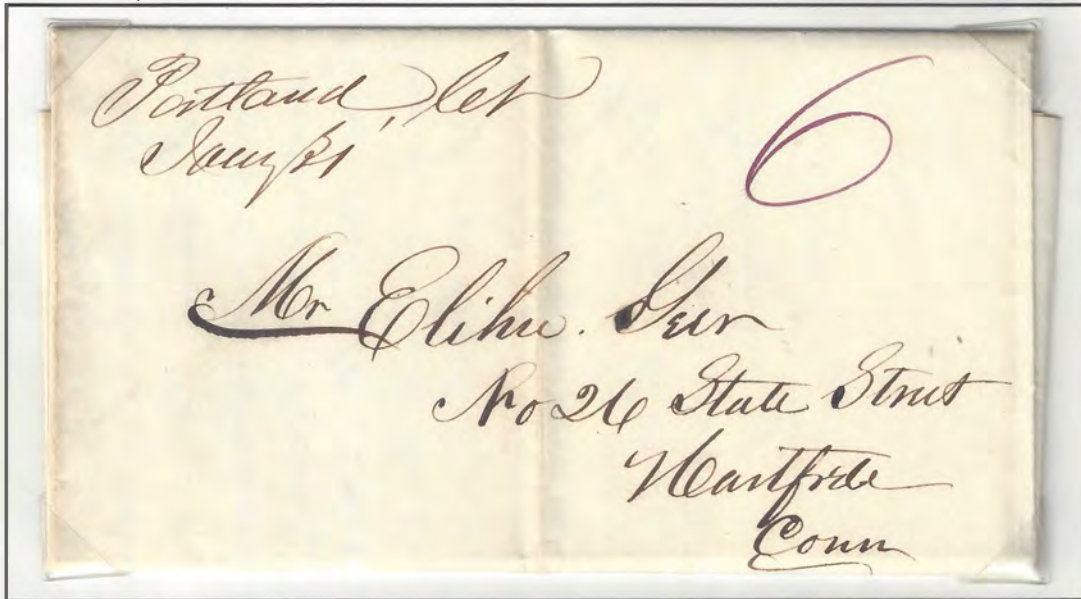 Portland, Ct
Jany 31
6
Mr Elihu. Geer
No 26 State Street
Hartford
Conn